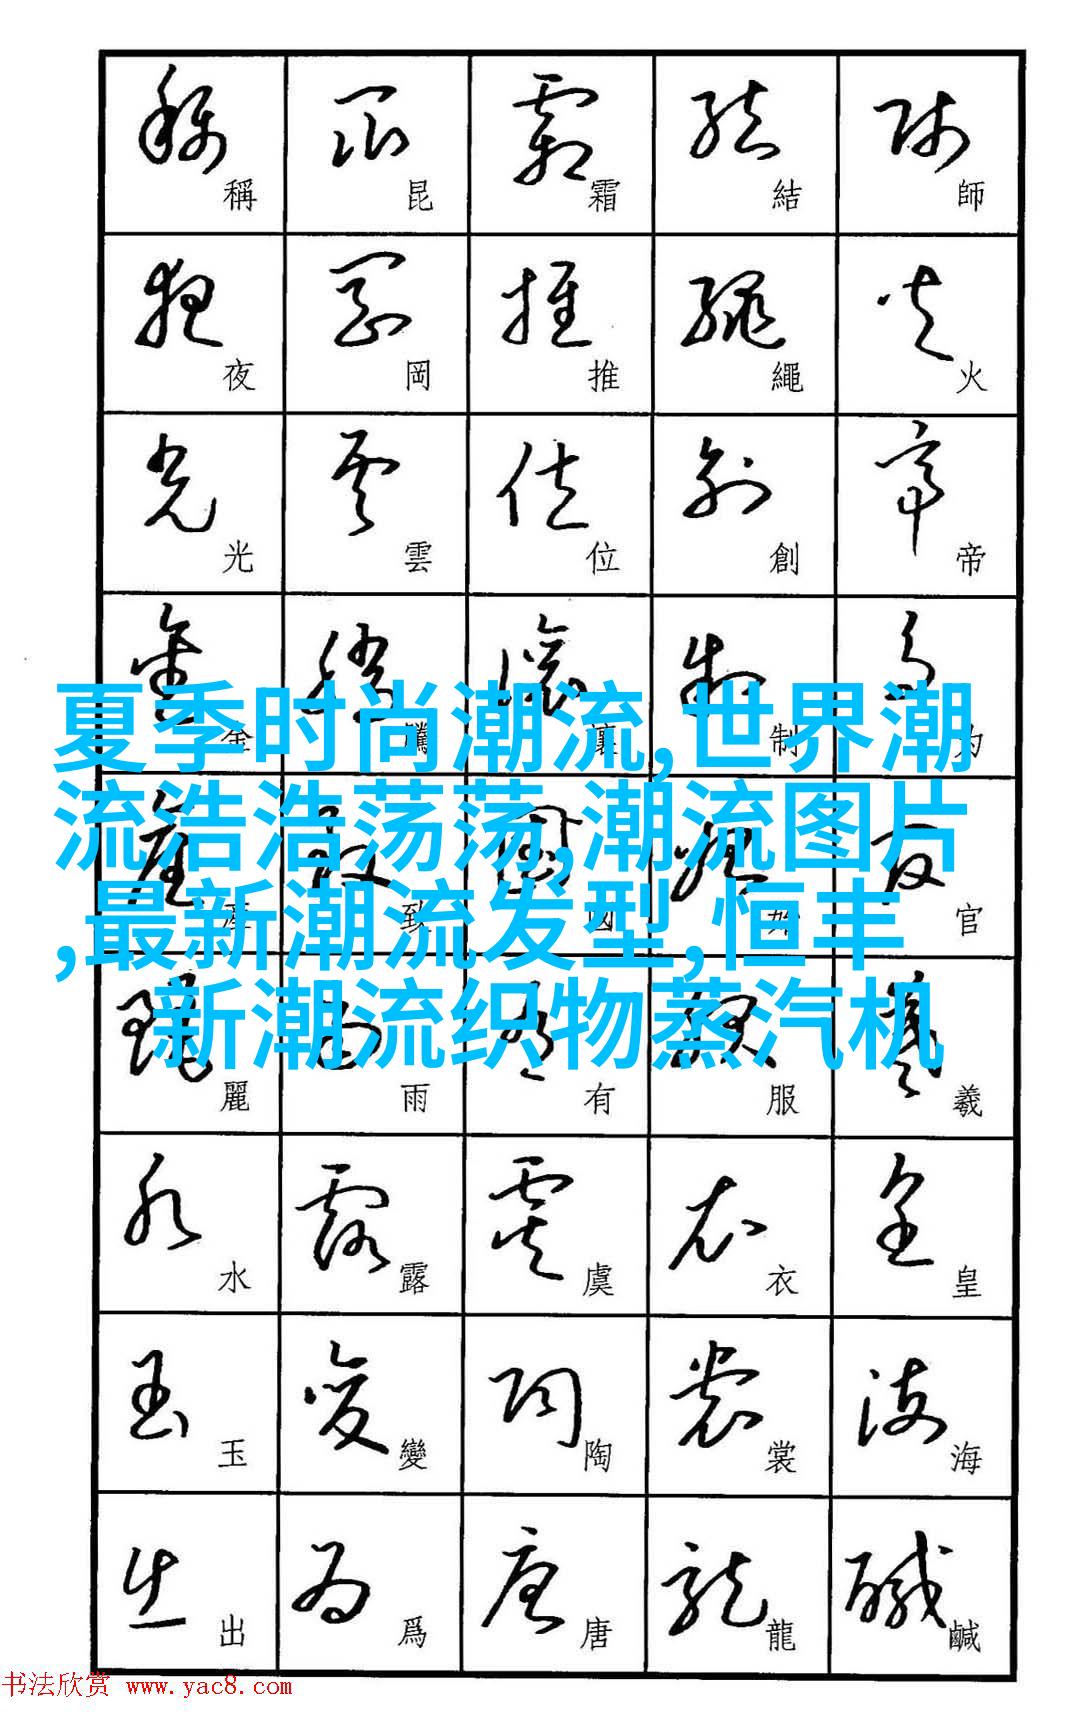 稱 昆 霜 結 師
夜 岡 推 繩 火
光 雲 位 創 帝
金 騰 讓 制
夏季时尚潮流,世界潮
流浩浩荡荡,潮流图片
,最新潮流发型,恒丰
新潮流织物蒸汽机
致 國 始 官
麗 雨 有 服 羲
水 露 虞 衣 皇
玉 變 陶 裳 海
出 爲 唐 龍 鹹
书法欣赏 www.yac8.com